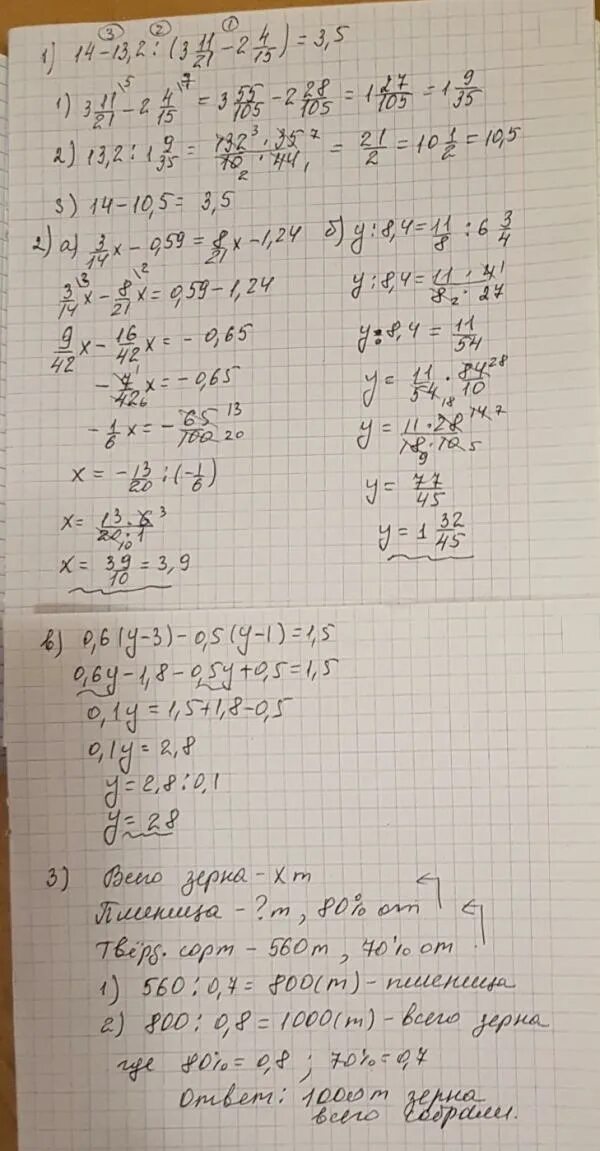 ③ ② ①
1) 14 - 13,2 : (3 11/21 - 2 4/15) = 3,5
1) 3 11/21 \5 - 2 4/15 \7 = 3 55/105 - 2 28/105 = 1 27/105 = 1 9/35
2) 13,2 : 1 9/35 = 132 3 · 35 7 / 10 2 · 44 1 = 21/2 = 10 1/2 = 10,5
3) 14 - 10,5 = 3,5
2) а) 3/14 x - 0,59 = 8/21 x - 1,24
3/14 \3 x - 8/21 \2 x = 0,59 - 1,24
9/42 x - 16/42 x = - 0,65
- 7 1/42 6 x = - 0,65
- 1/6 x = - 65 13/100 20
x = - 13/20 : (- 1/6)
x = 13 · 6 3 / 20 10 · 1
x = 39/10 = 3,9
б) у : 8,4 = 11/8 : 6 3/4
у : 8,4 = 11 · 4 1 / 8 2 · 27
у : 8,4 = 11/54
у = 11/54 18 · 84 28/10
у = 11 · 28 14 7 / 18 9 · 10 5
у = 77/45
у = 1 32/45
в) 0,6 (у-3) - 0,5 (у-1) = 1,5
0,6у - 1,8 - 0,5у + 0,5 = 1,5
0,1у = 1,5 + 1,8 - 0,5
0,1у = 2,8
у = 2,8 : 0,1
у = 28
3) Всего зерна - х т
Пшеница - ? т, 80% от
Твёрд. сорт - 560 т, 70% от
1) 560 : 0,7 = 800 (т) - пшеница
2) 800 : 0,8 = 1000 (т) - всего зерна
где 80% = 0,8 ; 70% = 0,7
Ответ: 1000т зерна
всего собрали.